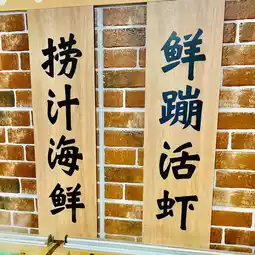 捞汁海鲜
鲜蹦活虾